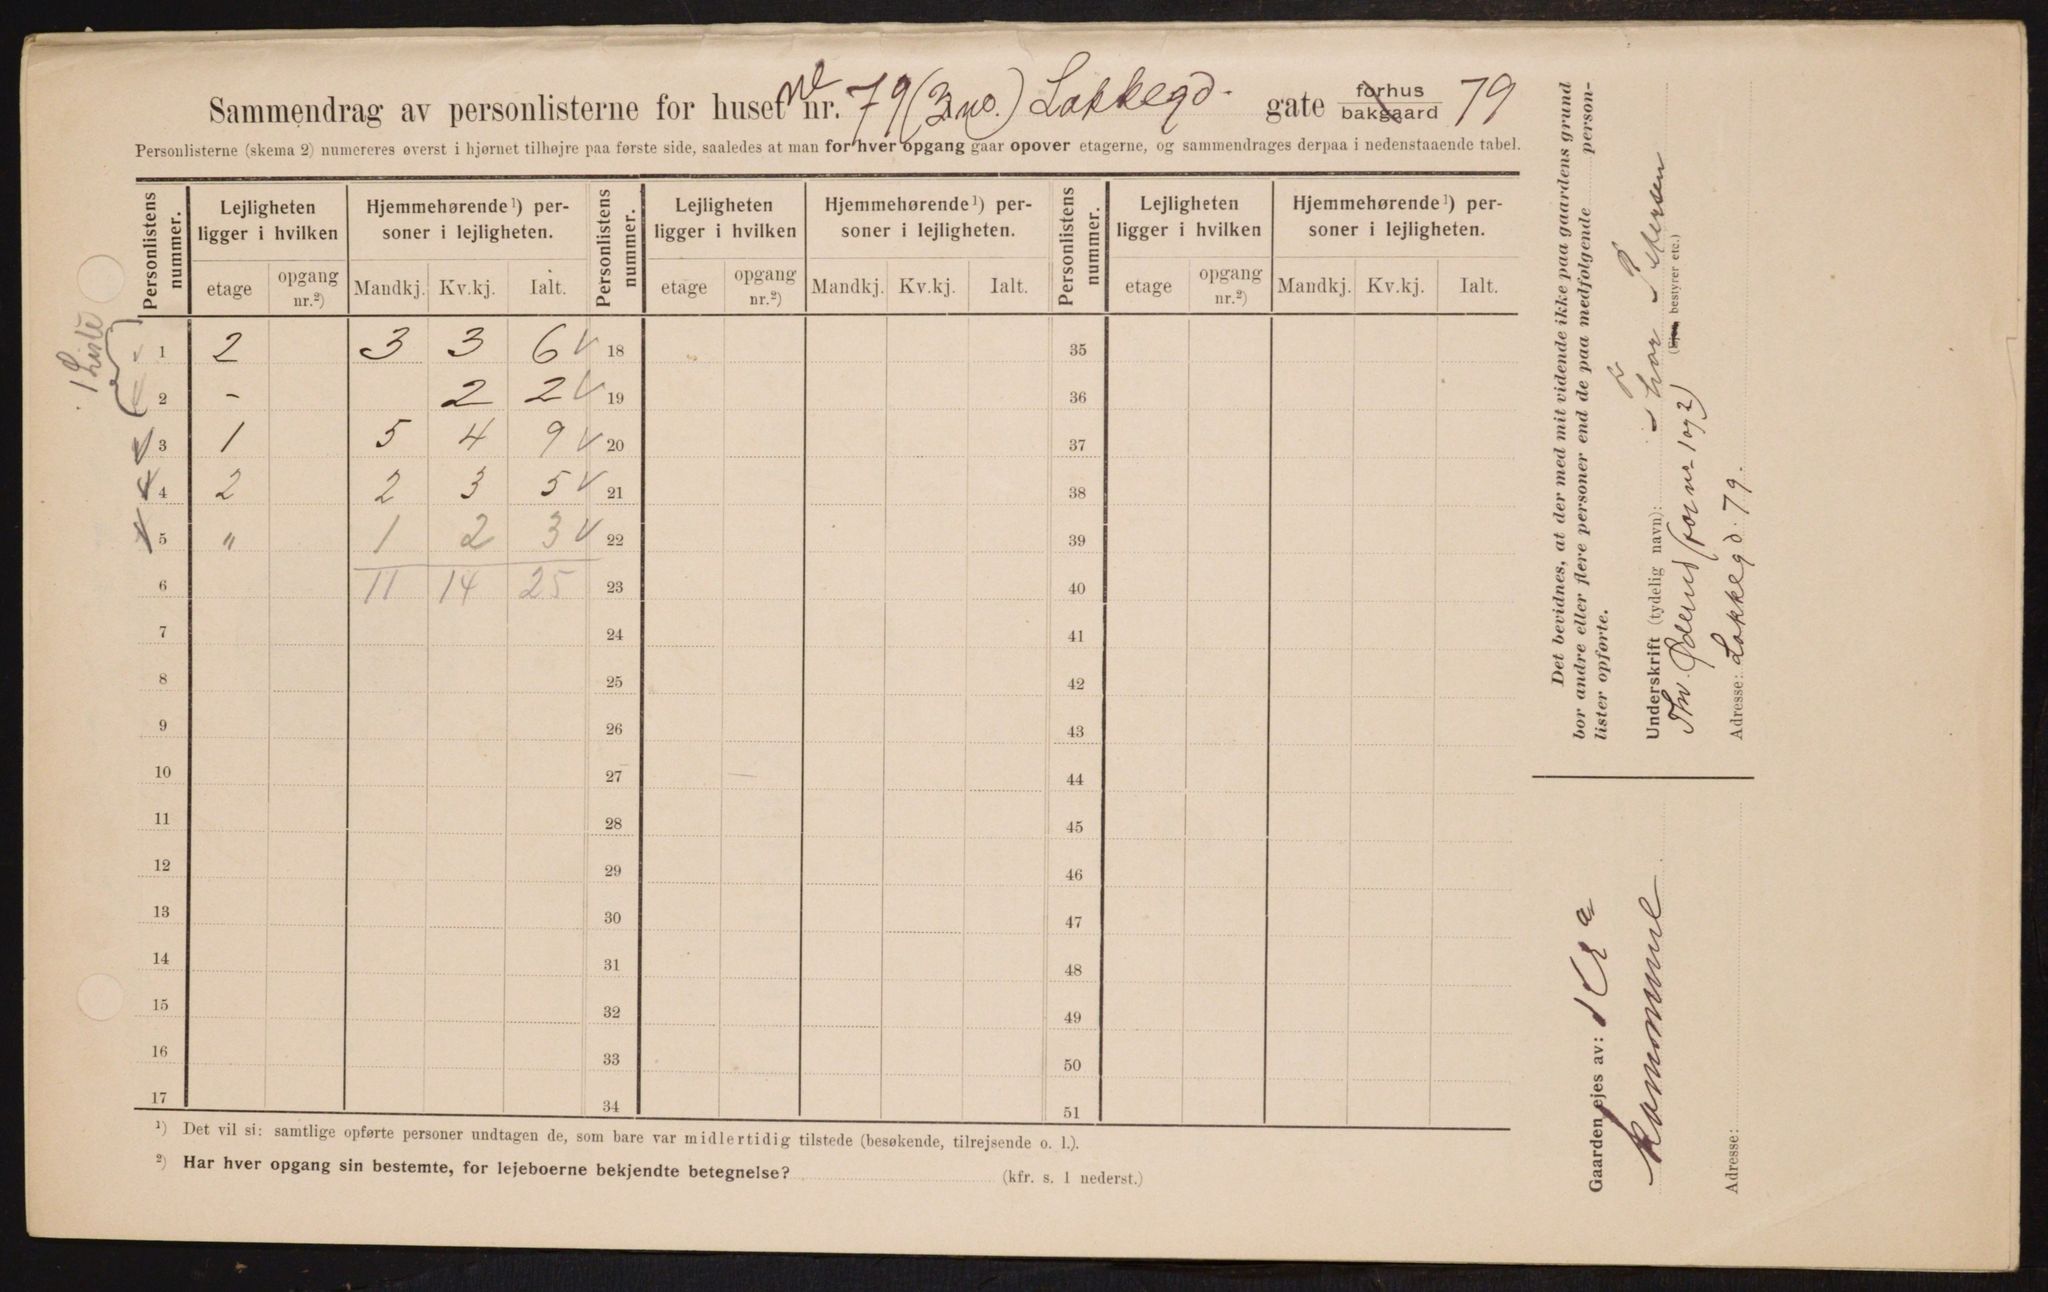 Sammendrag av personlisterne for huset nr. 79 (3 no.) Løkkegd. gate forhus bakgaard 79
Personlisterne (skema 2) numereres øverst i hjørnet tilhøjre paa første side, saaledes at man for hver opgang gaar opover etagerne, og sammendrages derpaa i nedenstaaende tabel.
Personlistens nummer. Lejligheten ligger i hvilken Hjemmehørende ¹) personer i lejligheten. Personlistens nummer. Lejligheten ligger i hvilken Hjemmehørende ¹) personer i lejligheten. Personlistens nummer. Lejligheten ligger i hvilken Hjemmehørende ¹) personer i lejligheten.
etage opgang nr.²) Mandkj. Kv.kj. Ialt. etage opgang nr.²) Mandkj. Kv.kj. Ialt. etage opgang nr.²) Mandkj. Kv.kj. Ialt.
1 Liste
1 2 3 3 6 18 35
2 - 2 2 19 36
3 1 5 4 9 20 37
4 2 2 3 5 21 38
5 " 1 2 3 22 39
6 11 14 25 23 40
7 24 41
8 25 42
9 26 43
10 27 44
11 28 45
12 29 46
13 30 47
14 31 48
15 32 49
16 33 50
17 34 51
¹) Det vil si: samtlige opførte personer undtagen de, som bare var midlertidig tilstede (besøkende, tilrejsende o. l.).
²) Har hver opgang sin bestemte, for lejeboerne bekjendte betegnelse? (kfr. s. 1 nederst.)
Det bevidnes, at der med mit vidende ikke paa gaardens grund
bor andre eller flere personer end de paa medfølgende person-
lister opførte.
Underskrift (tydelig navn): Thor Petersen
(Ejer, bestyrer etc.)
Th. (for nr 1 og 2)
Adresse: Løkkegd. 79.
Gaarden ejes av: Kra
kommune
Adresse: